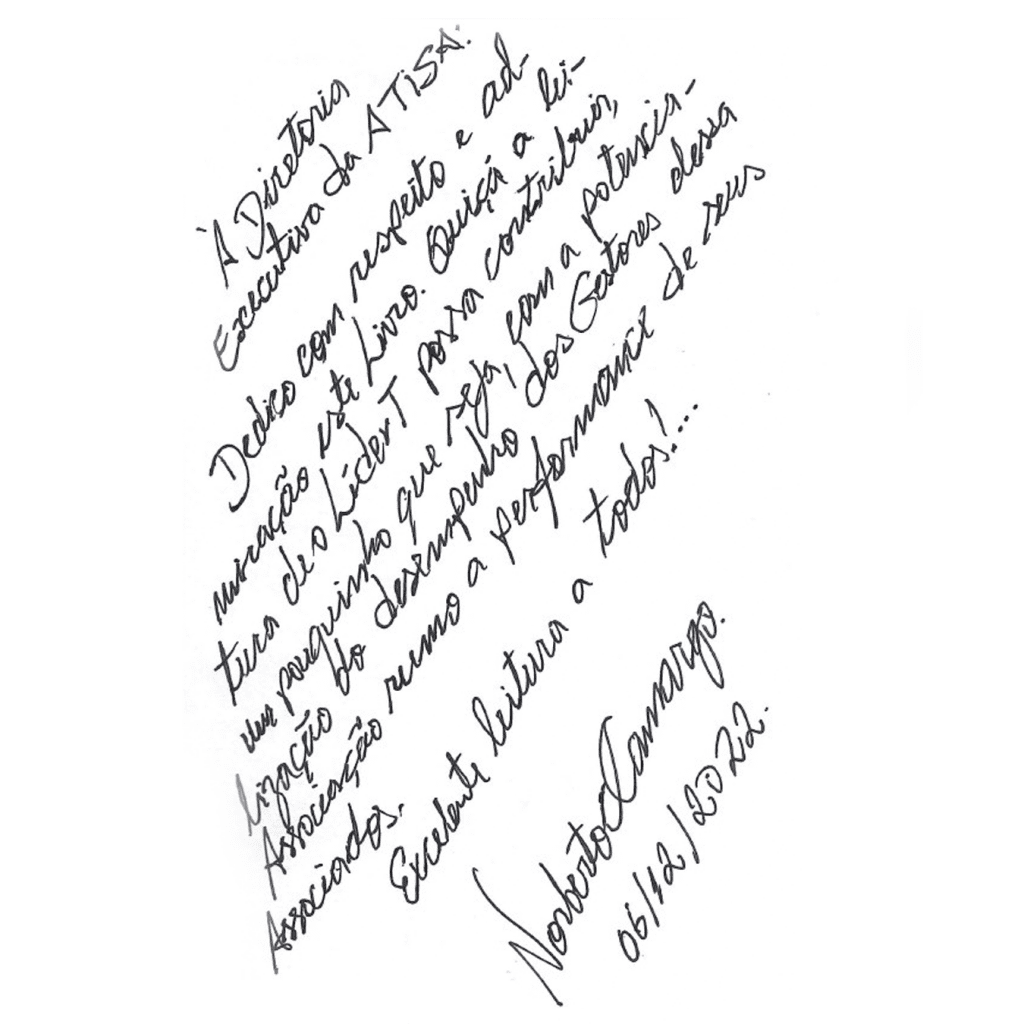 À Diretoria
Executiva da ATISA:
Dedico com respeito e ad-
miração este Livro. Quiçá a lei-
tura de o LíderT possa contribuir,
um pouquinho que seja, com a potencia-
lização do desempenho dos Gestores dessa
Associação rumo a performance de seus
Associados.
Excelente leitura a todos!...
Norberto Camargo.
06/12/2022.